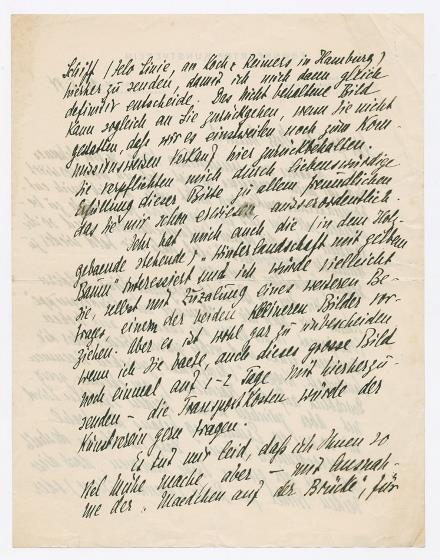 Schiff (Selo Linie, an Koch & Reimers in Hamburg)
hierher zu senden, damit ich mich dann gleich
definitiv entscheide. Das nicht behaltene Bild
kann sogleich an Sie zurückgehen, wenn Sie nicht
gestatten, dass wir es einstweilen noch zum Kom-
missionsweisen Verkauf hier zurückbehalten.
Sie verpflichten mich durch liebenswürdige
Erfüllung dieser Bitte zu allem freundlichen
das Sie mir schon erwiesen, ausserordentlich.
Sehr hat mich auch die (in dem Holz-
gebaeude stehende) "Winterlandschaft mit gelbem
Baum" interessiert und ich würde vielleicht
sie, selbst mit Zuzalung eines weiteren Be-
trages, einem der beiden kleineren Bilder vor-
ziehen. Aber es ist wohl gar zu unbescheiden
wenn ich Sie baete, auch dieses grosse Bild
noch einmal auf 1-2 Tage mit hierherzu-
senden – die Transportkosten würde der
Kunstverein gern tragen.
Es tut mir leid, daß ich Ihnen so
viel Mühe mache, aber – mit Ausnah-
me der "Maedchen auf der Brücke", für